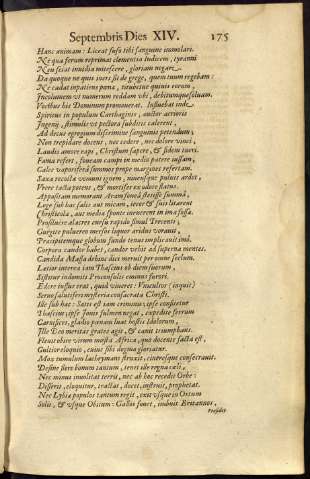 Septembris Dies XIV. 175
Hanc animam: Liceat fuso tibi sanguine immolari.
Ne qua ferum reprimat clementia Iudicem, tyranni
Neu sciat inuidia mitescere, gloriam negare.
Da quoque ne quis iners sit de grege, quem tuum regebam:
Ne cadat impatiens pœnæ, titubetue quis tuorum,
Incolumem vt numerum reddam tibi, debitumque soluam.
Vocibus his Dominum promouerat. Influebat inde
Spiritus in populum Carthaginis, auctor acrioris
Ingenij, stimulis vt pectora subditis calerent,
Ad decus egregium discrimine sanguinis petendum,
Non trepidare docens, nec cedere, nec dolore vinci,
Laudis amore rapi, Christum sapere, & fidem tueri.
Fama refert, foueam campi in medio patere iussam,
Calce vaporifera summos prope margines refertam.
Saxa recocta vomunt ignem, niueusque puluis ardet,
Vrere tacta potens, & mortifer ex odore flatus.
Appositam memorant Aram foueæ stetisse summâ,
Lege sub hac salis aut micam, iecur & suis litarent
Christicolæ, aut mediæ sponte irruerent in ima fossæ.
Prosiluere alacres cursu rapido simul Trecenti,
Gurgite pulueres mersos liquor aridus voraui.
Præcipitemque globum fundo tenus implicauit imo.
Corpora candor habet, candor vehit ad superna mentes.
Candida Massa dehinc dici meruit per omne seclum.
Lætior interea iam Thascius ob diem suorum,
Sistitur indomitis Proconsulis eminus furori.
Edere iussus erat, quid viueret: Vnicultor (inquit)
Trado salutiferi mysteria consecrata Christi.
Ille sub hæc: Satis est iam criminis, ipse confitetur
Thascius; ipse Iouis fulmen negat, expedite ferrum
Carnifices, gladio pœnam luat hostis Idolorum,
Ille Deo meritas grates agit, & canit triumphans.
Fleuit obire virum mœsta Africa, quo docente facta est
Cultior eloquio, cuius sibi dogma gloriatur.
Mox tumulum lachrymans struxit, cineresque consecrauit.
Desine flere bonum tantum, tenet ille regna cœli,
Nec minus inuolitat terris, nec ab hoc recedit Orbe:
Disserit, eloquitur, tractat, docet, instruit, prophetat.
Nec Lybiæ populos tantum regit, exit vsque in Ortum
Solis, & vsque Obitum: Gallos fouet, imbuit Britannos,
Præsidet